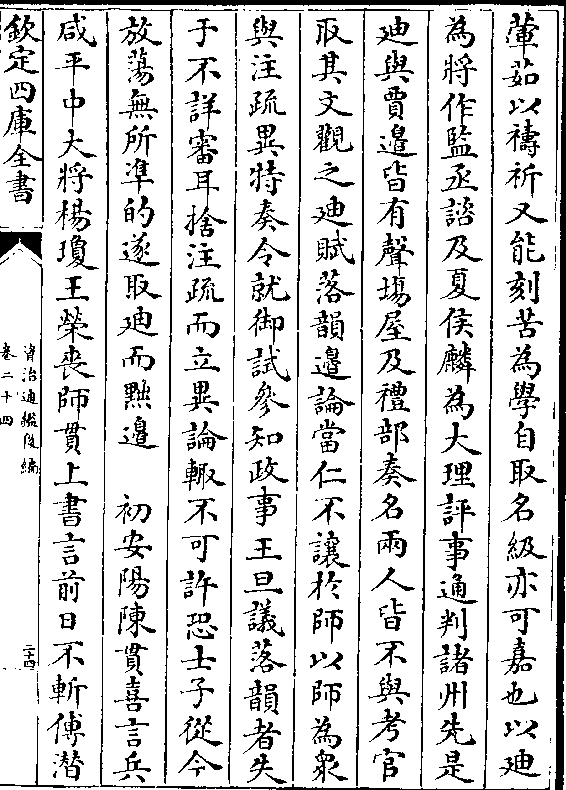 葷茹以禱祈又能刻苦為學自取名級亦可嘉也以廸
為將作監丞諮及夏侯麟為大理評事通判諸州先是
廸與賈邉皆有聲塲屋及禮部奏名兩人皆不與考官
取其文觀之廸賦落韻邉論當仁不讓於師以師為衆
與注疏異特奏令就御試參知政事王旦議落韻者失
于不詳審耳捨注疏而立異論輙不可許恐士子從今
放蕩無所凖的遂取廸而黜邉　初安陽陳貫喜言兵
咸平中大將楊瓊王榮喪師貫上書言前日不斬傅潛
欽定四庫全書
資治通鑑後編
卷二十四
二十四